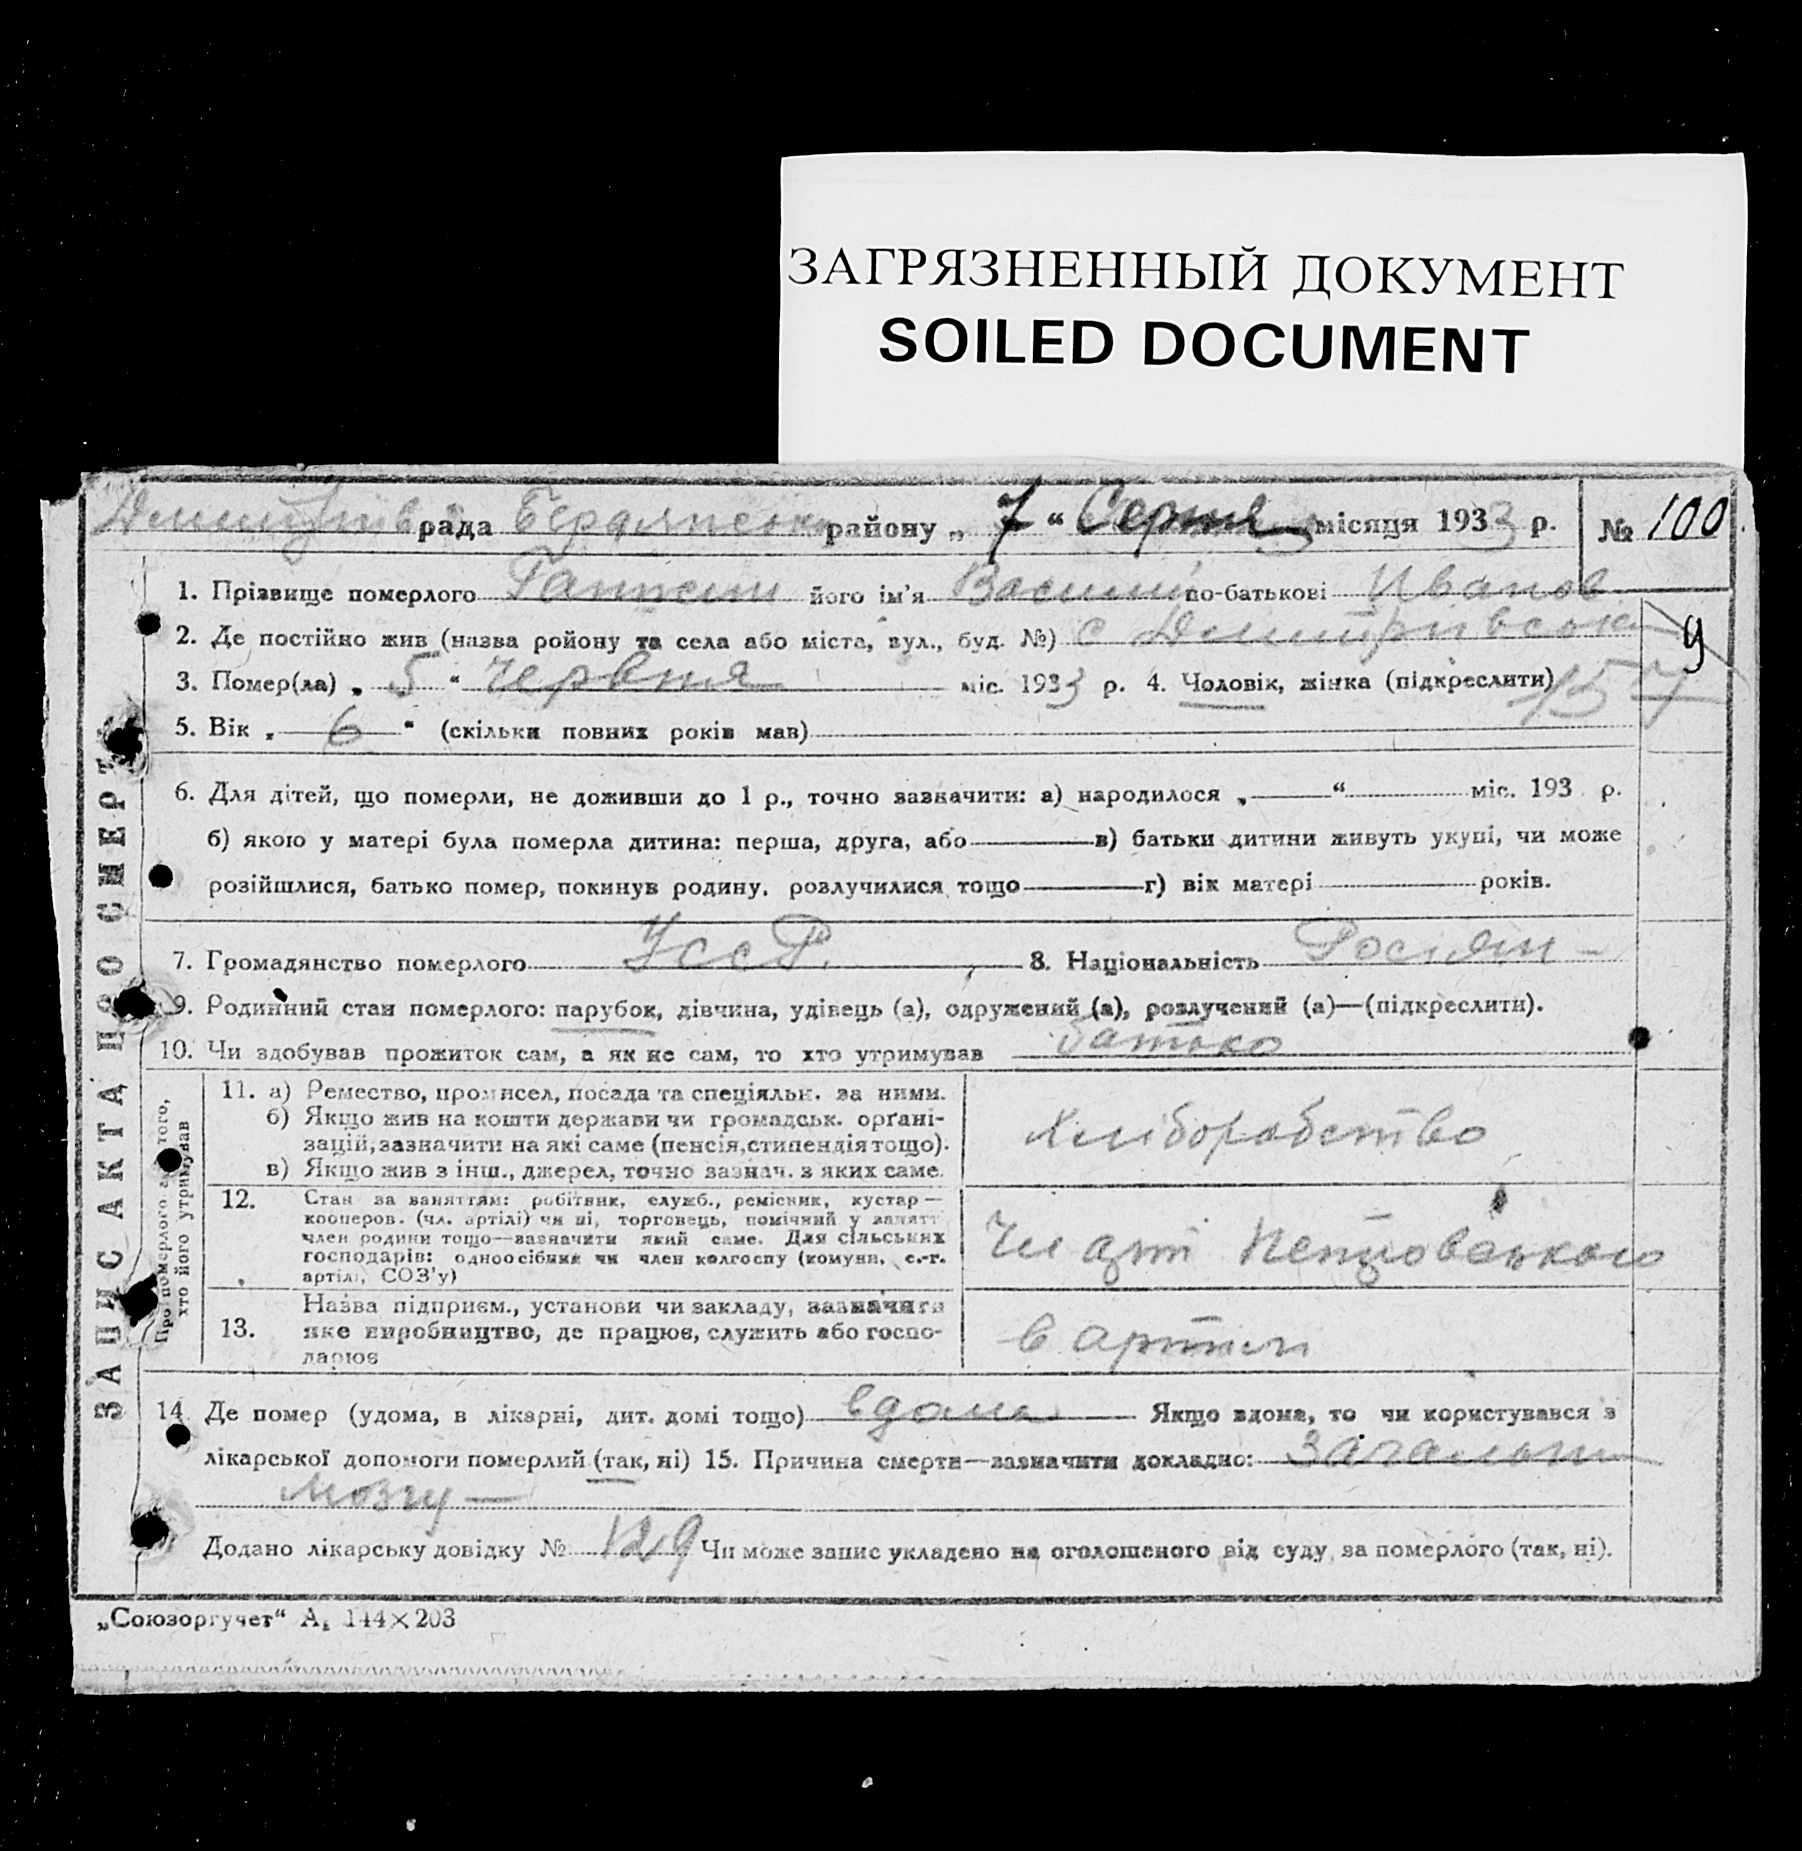 ЗАГРЯЗНЕННЫЙ ДОКУМЕНТ
SOILED DOCUMENT
рада Бердянсько району „ 7 “ Серпня місяця 1933 р. № 100
1. Прізвище померлого його ім'я Василий по-батькові Иванов
2. Де постійно жив (назва ройону та села або міста, вул., буд. №) с Дмитрівсока
9
3. Помер(ла) „ 5 “ червня міс. 1933 р. 4. Чоловік, жінка (підкреслити) 157
5. Вік „ 6 “ (скільки повних років мав)
6. Для дітей, що померли, не доживши до 1 р., точно зазначити: а) народилося „ “ міс. 193 р.
б) якою у матері була померла дитина: перша, друга, або в) батьки дитини живуть укупі, чи може
розійшлися, батько помер, покинув родину, розлучилися тощо г) вік матері років.
7. Громадянство померлого УССР. 8. Національність Росіян -
9. Родинний стан померлого: парубок, дівчина, удівець (а), одружений (а), розлучений (а)—(підкреслити).
10. Чи здобував прожиток сам, а як не сам, то хто утримував батько
ЗАПИС АКТА ПРО СМЕРТ
Про померлого а того, хто його утримував
11. а) Ремество, промисел, посада та спеціяльн. за ними.
б) Якщо жив на кошти держави чи громадськ. орґані-
зацій, зазначити на які саме (пенсія, стипендія тощо).
в) Якщо жив з інш., джерел, точно зазнач. з яких саме.
Хліборобство
12. Стан за заняттям: робітник, служб., ремісник, кустар —
кооперов. (чл. артілі) чи ні, торговець, помічний у занятт
член родини тощо—зазначити який саме. Для сільських
господарів: одноосібник чи член колгоспу (комуни, с.-г.
артілі, СОЗ'у)
Чл арт Петровського
13. Назва підприєм., установи чи закладу, зазначити
яке виробництво, де працює, служить або госпо-
дарює
в артили
14 Де помер (удома, в лікарні, дит. домі тощо) вдома Якщо вдома, то чи користувався з
лікарської допомоги померлий (так, ні) 15. Причина смерти—зазначити докладно:
мозгу —
Додано лікарську довідку № 129 Чи може запис укладено на оголошеного від суду за померлого (так, ні).
„Союзоргучет“ А, 144×203